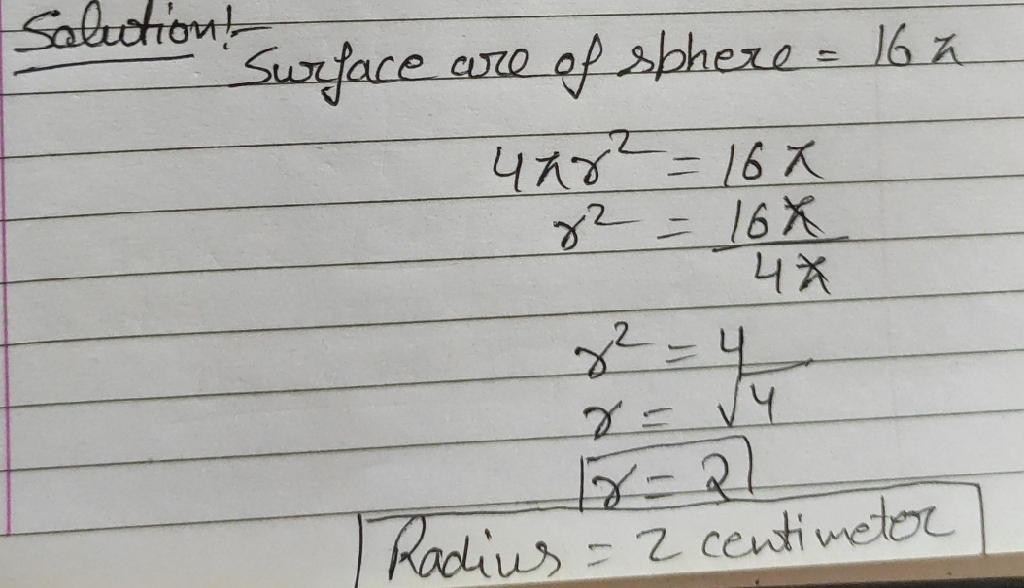 Solution:-
Surface are of sphere = 16 π
4πr² = 16 π
r² = 16π
4π
r² = 4
r = √4
r = 2
Radius = 2 centimeter